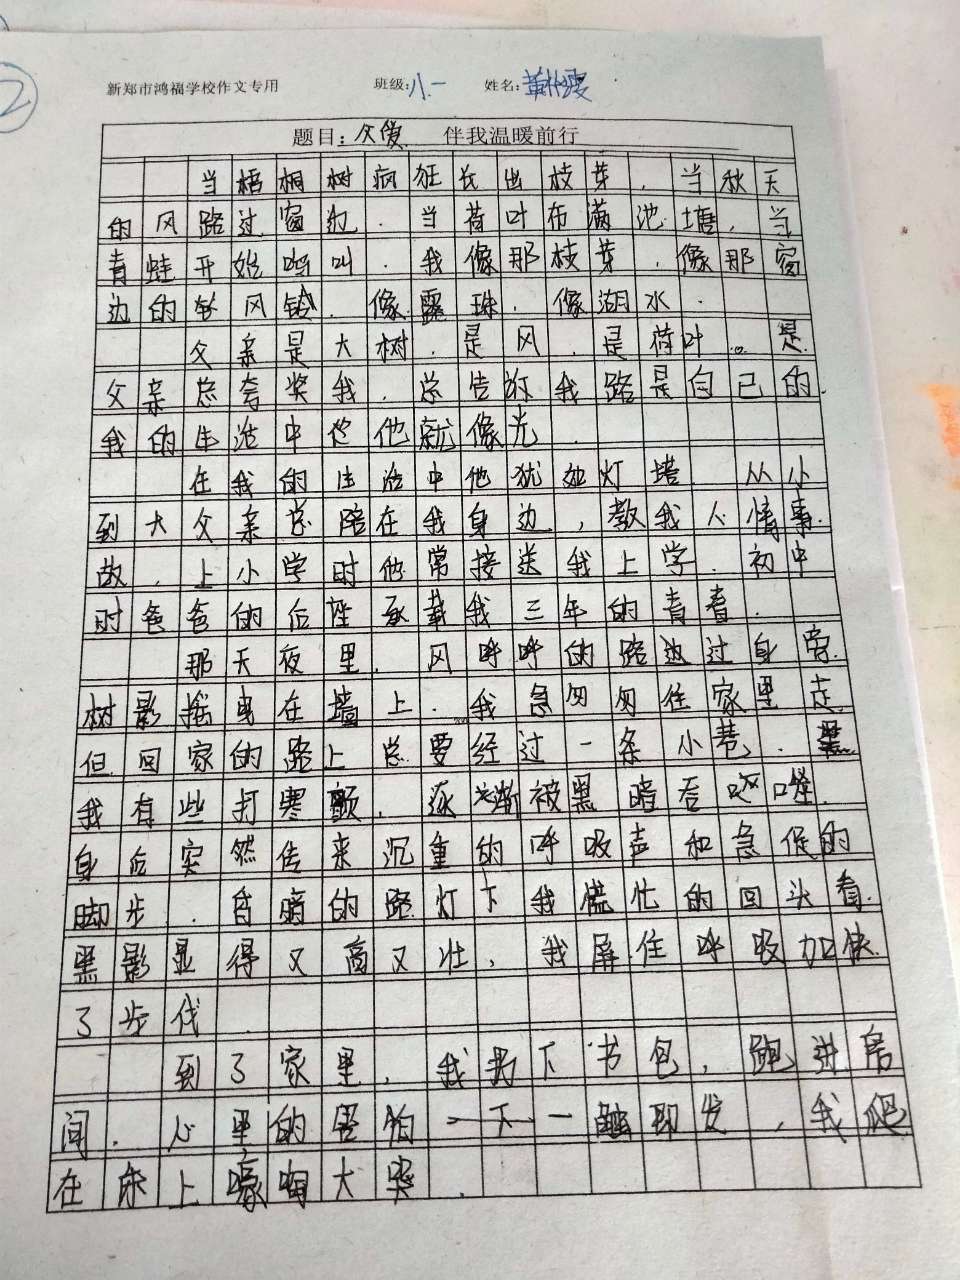 2
新郑市鸿福学校作文专用 班级:八.一 姓名:
题目:父爱 伴我温暖前行
当梧桐树疯狂长出枝芽，当秋天
的风路过窗边．当荷叶布满池塘，当
青蛙开始鸣叫．我像那枝芽，像那窗
边的风铃．像露珠．像湖水．
父亲是大树．是风．是荷叶…是
父亲总夸奖我．总告诉我路是自己的．
我的生活中他就像光．
在我的生活中他犹如灯塔．从小
到大父亲总陪在我身边，教我人情事
故．上小学时他常接送我上学．初中
时爸爸的后座承载我三年的青春．
那天夜里．风呼呼的路边过身旁．
树影摇曳在墙上．我急匆匆往家里走．
但回家的路上总要经过一条小巷．
我有些打寒颤．逐渐被黑暗吞噬．
身后突然传来沉重的呼吸声和急促的
脚步．昏暗的路灯下我慌忙的回头看．
黑影显得又高又壮，我屏住呼吸加快
了步伐．
到了家里，我下书包，跑进房
间．心里的害怕一下一触即发，我爬
在床上嚎啕大哭．